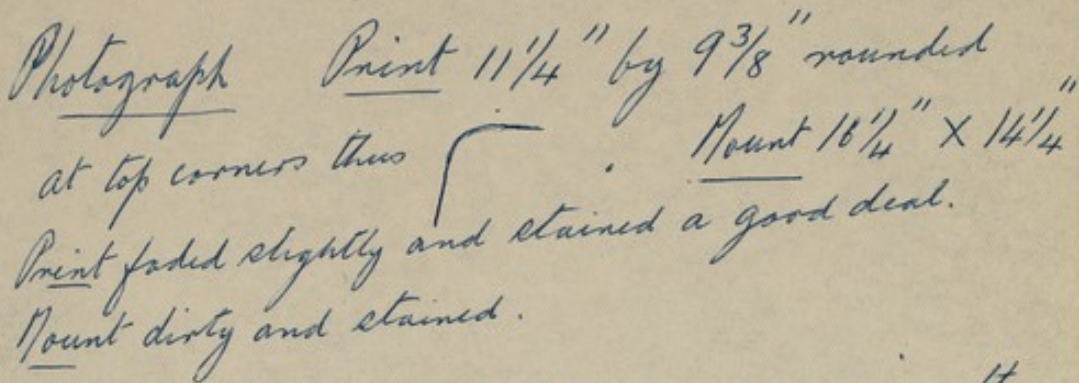 Photograph Print 11 1/4" by 9 3/8" rounded
at top corners thus . Mount 16 1/4" X 14 1/4"
Print faded slightly and stained a good deal.
Mount dirty and stained.